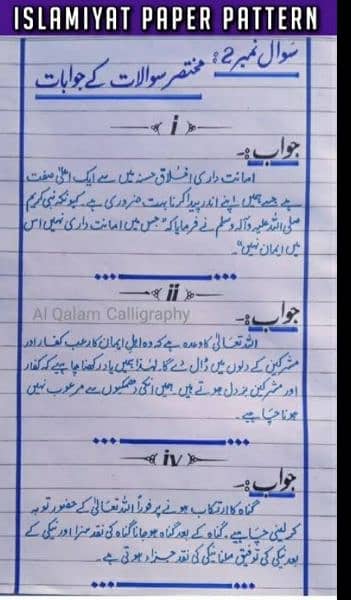 ISLAMIYAT PAPER PATTERN
سوال نمبر 2:
مختصر سوالات کے جوابات
i
جواب:-
امانت داری اخلاقِ حسنہ میں سے ایک اعلیٰ صفت
ہے جسے ہمیں اپنے اندر پیدا کرنا بہت ضروری ہے۔ کیونکہ نبی کریم
صلی اللہ علیہ وآلہ وسلم نے فرمایا کہ "جس میں امانت داری نہیں اس
میں ایمان نہیں"۔
ii
Al Qalam Calligraphy
جواب:-
اللہ تعالیٰ کا وعدہ ہے کہ وہ اہلِ ایمان کا رعب کفار اور
مشرکین کے دلوں میں ڈال دے گا۔ لہٰذا ہمیں یاد رکھنا چاہیے کہ کفار
اور مشرکین بزدل ہوتے ہیں ہمیں انکی دھمکیوں سے مرعوب نہیں
ہونا چاہیے۔
iv
جواب:-
گناہ کا ارتکاب ہونے پر فوراً اللہ تعالیٰ کے حضور توبہ
کر لینی چاہیے۔ گناہ کے بعد گناہ ہو جانا گناہ کی نقد سزا اور نیکی کے
بعد نیکی کی توفیق ملنا نیکی کی نقد جزاء ہوتی ہے۔